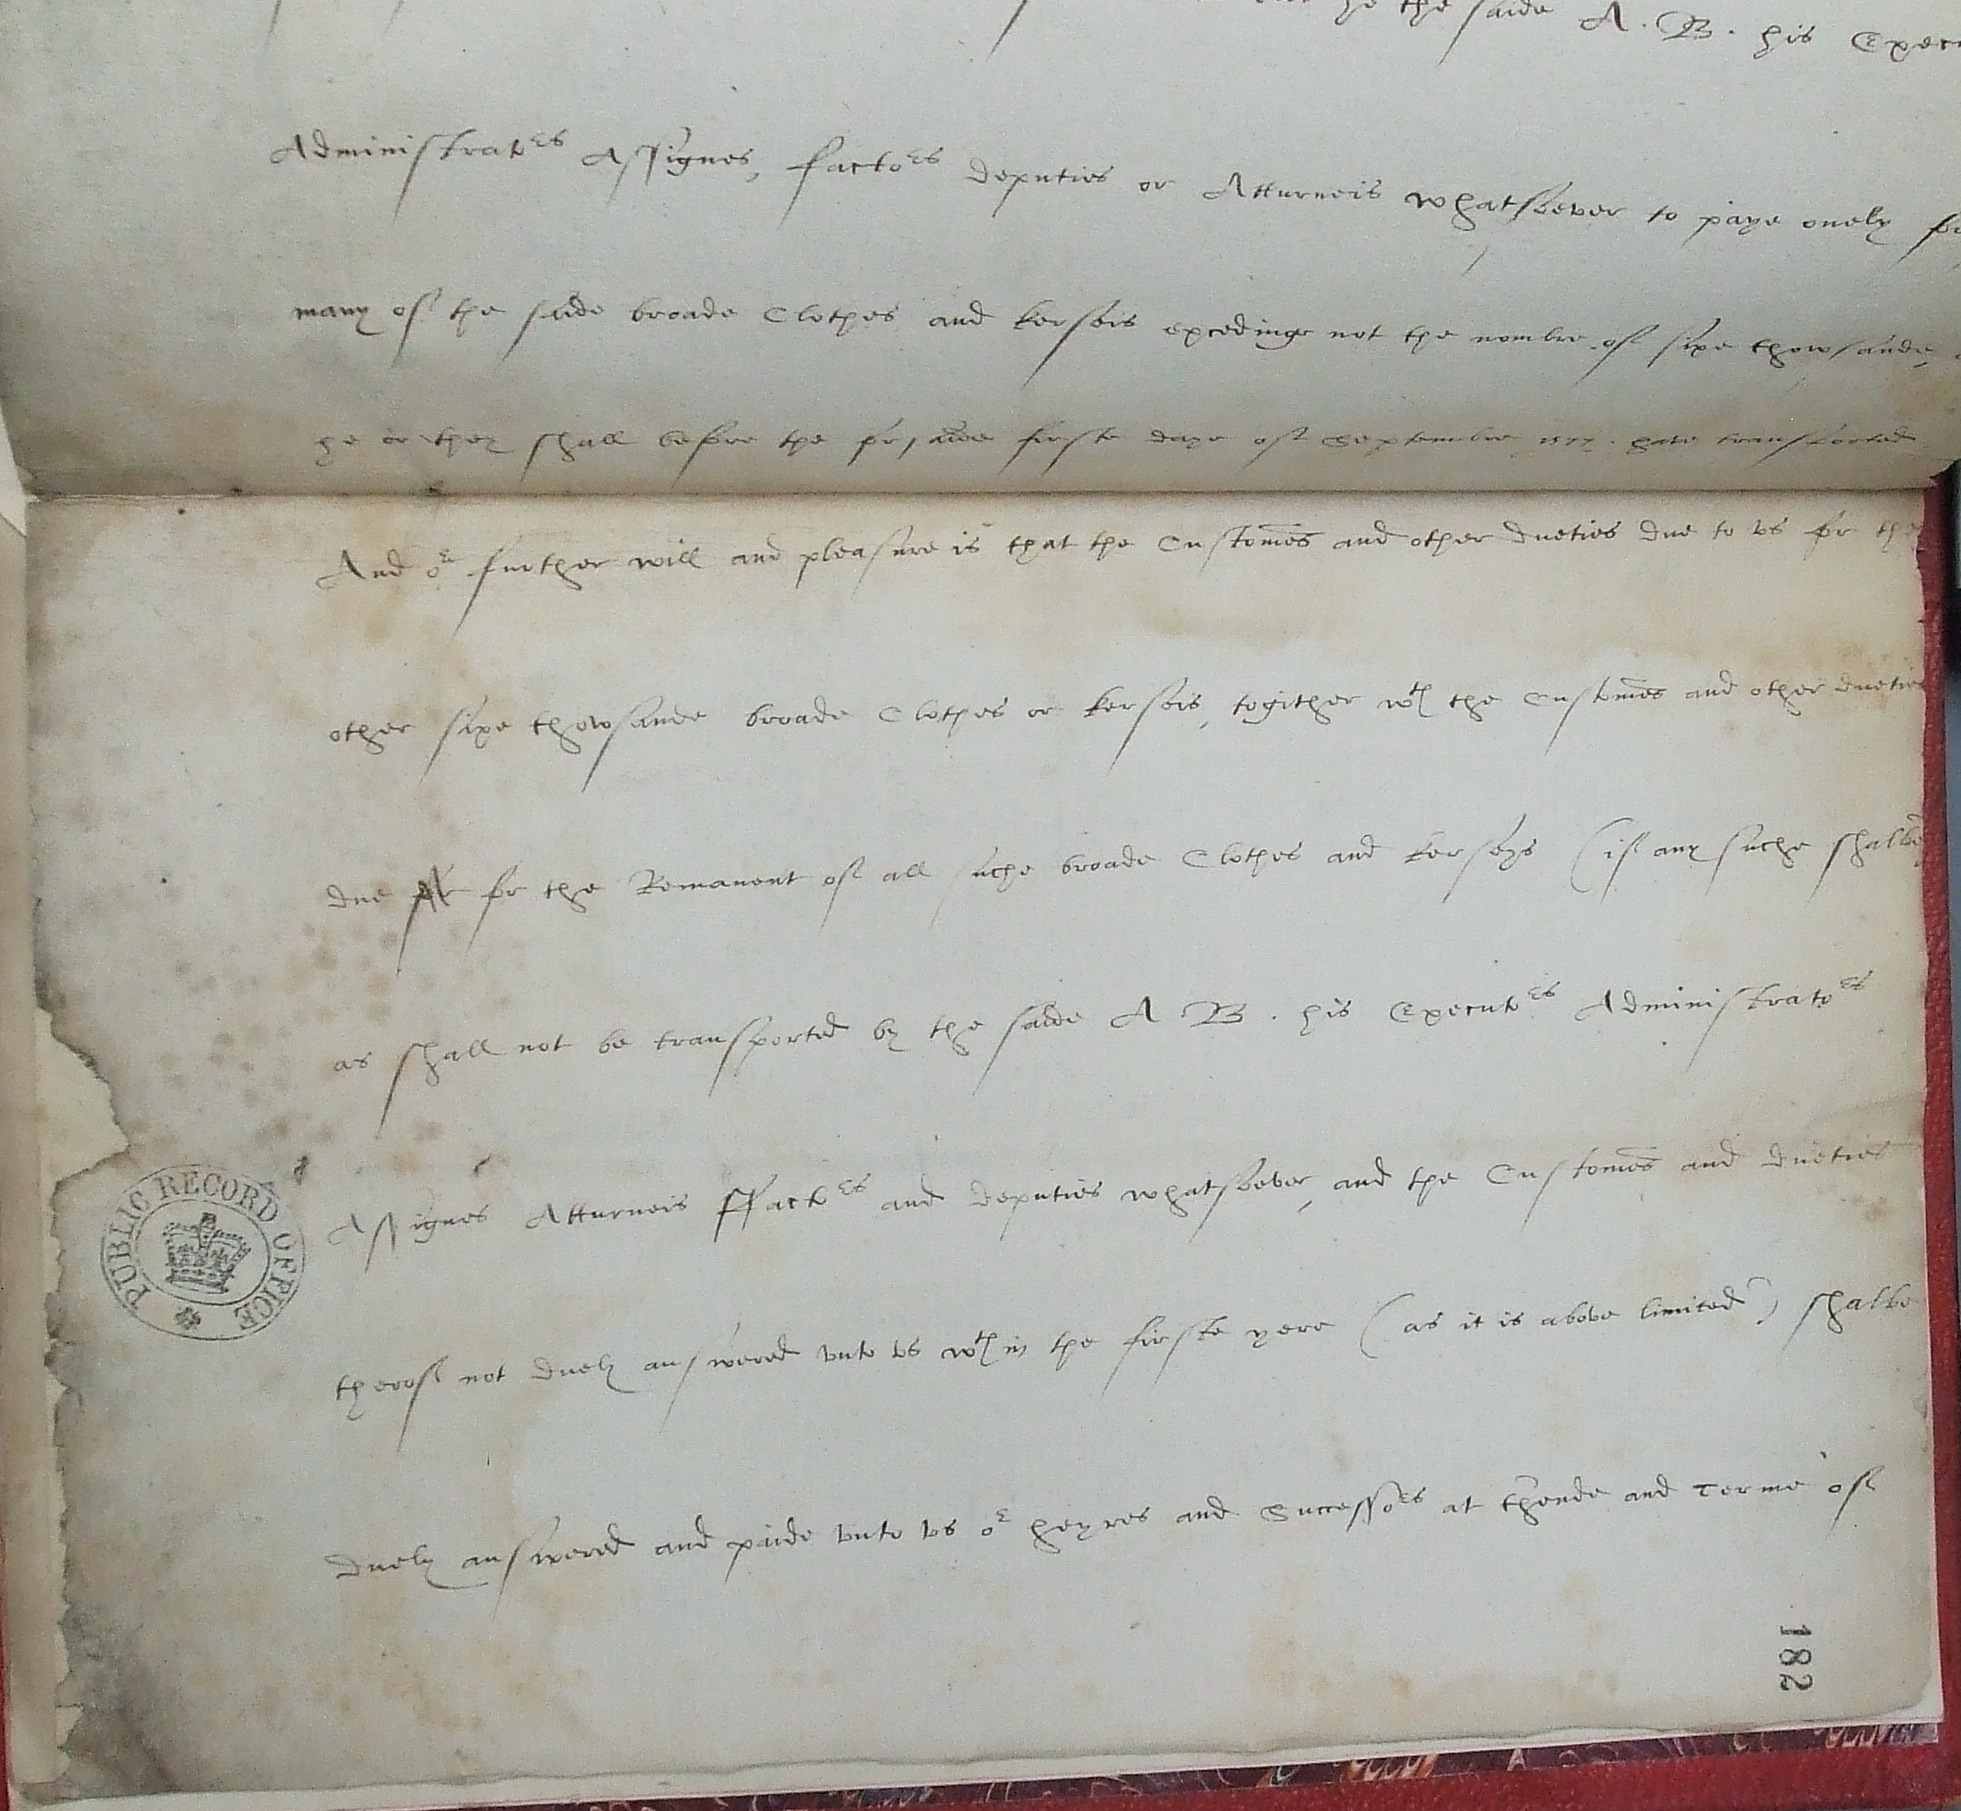 he the saide A. B. his
Administratoes Assignes, factoes deputies or Atturneis whatsoever to paye onely
many of the saide broade Clothes and kerseis excedinge not the nombre of sixe thowsande,
he or they shall before the firste daye of Septembre 1577. have transported
And or further will and pleasure is that the Customes and other dueties due to vs for the
other sixe thowsande broade Clothes or kerseis, togither wth the Customes and other dueties
due for the Remanent of all suche broade Clothes and kerseys (if any suche shalbe
as shall not be transported by the saide A B. his Executoes Administratoes
Assignes Atturneis ffactoes and deputies whatsoever, and the Customes and dueties
therof not duely answered vnto vs wthin the firste yere (as it is above limited) shalbe
duely answered and paide vnto vs or heyres and Successoes at thende and terme of
PUBLIC RECORD OFFICE
182